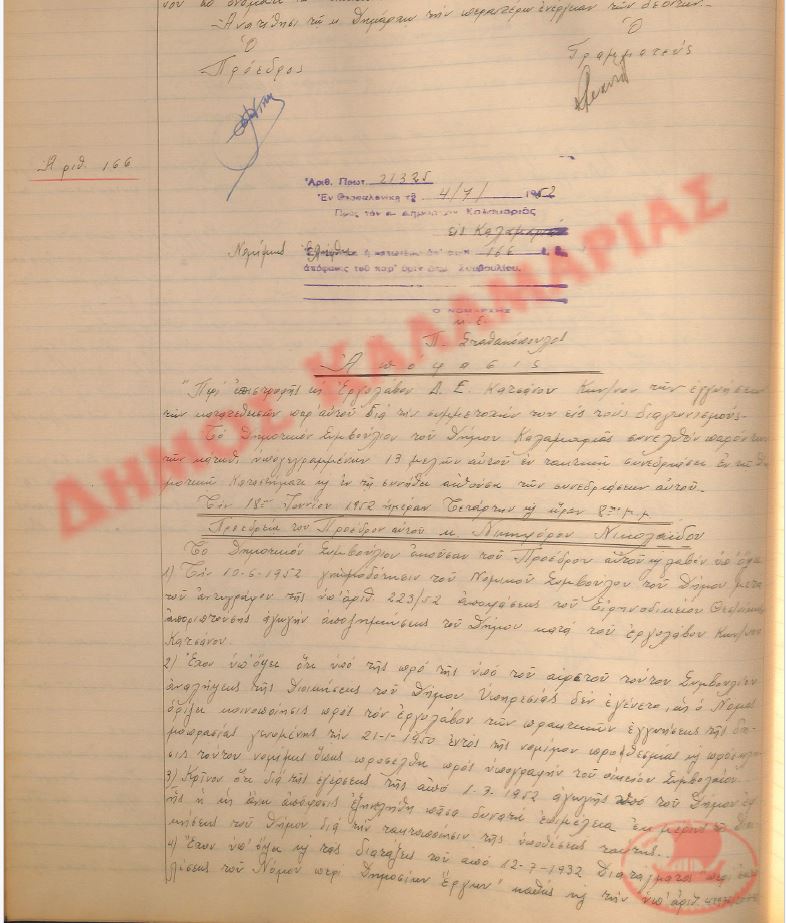 - Ανατίθησι τῷ κ. Δημάρχῳ τὴν περαιτέρω ἐνέργειαν τῶν δεόντων.-
Ὁ Ὁ
-Πρόεδρος Γραμματεύς
Ἀριθ. 166
Ἀριθ. Πρωτ. 21325
Ἐν Θεσσαλονίκῃ τῇ 4/7/1952
Πρὸς τὸν κ. Δήμαρχον Καλαμαριᾶς
εἰς Καλαμαριὰ
166
ἀπόφασις τοῦ παρ' ὑμῖν Δημ. Συμβουλίου.
Ὁ ΝΟΜΑΡΧΗΣ
Π. Σταθακόπουλος
ΔΗΜΟΣ ΚΑΛΑΜΑΡΙΑΣ
-Ἀπόφασις
"Περὶ ἐπιστροφῆς εἰς Ἐργολάβον Δ. Ε. Κατσάνον Κων/νον τῶν ἐγγυήσεων
τῶν κατατεθεισῶν παρ' αὐτοῦ διὰ τὴν συμμετοχήν του εἰς τοὺς διαγωνισμούς.-
Τὸ Δημοτικὸν Συμβούλιον τοῦ Δήμου Καλαμαριᾶς συνελθὸν παρόντων
τῶν κάτωθι ὑπογεγραμμένων 13 μελῶν αὐτοῦ ἐν τακτικῇ συνεδριάσει ἐν τῷ Δη
μοτικῷ Καταστήματι κ ἐν τῇ συνήθει αἰθούσῃ τῶν συνεδριάσεων αὐτοῦ.-
Τὴν 18ην Ἰουνίου 1952 ἡμέραν Τετάρτην κ ὥραν 8ην μ.μ.
Προεδρεία τοῦ Προέδρου αὐτοῦ κ. Νικηφόρου Νικολαΐδου
Τὸ Δημοτικὸν Συμβούλιον ἀκοῦσαν τοῦ Προέδρου αὐτοῦ κ λαβὸν ὑπ' ὄψει
1) Τὴν 10-6-1952 γνωμοδότησιν τοῦ Νομικοῦ Συμβούλου τοῦ Δήμου μετὰ
τοῦ ἀντιγράφου τῆς ὑπ' ἀριθ. 223/52 ἀποφάσεως τοῦ Εἰρηνοδικείου Θεσ/νίκης
ἀπορριπτούσης ἀγωγὴν ἀποζημιώσεως τοῦ Δήμου κατὰ τοῦ ἐργολάβου Κων/νου
Κατσάνου.
2) Ἔχον ὑπ' ὄψει ὅτι ὑπὸ τῆς πρὸ τῆς ὑπὸ τοῦ αἱρετοῦ τούτου Συμβουλίου
ἀναλήψεως τῆς Διοικήσεως τοῦ Δήμου Ὑπηρεσίας δὲν ἐγένετο, ὡς ὁ Νόμος
ὁρίζει κοινοποίησις πρὸς τὸν ἐργολάβον τῶν πρακτικῶν ἐγγυήσεως τῆς δη-
μοπρασίας γενομένης τὴν 21-1-1950 ἐντὸς τῆς νομίμου προθεσμίας κ πρόσκλη-
σις τούτου νομίμως ὅπως προσέλθῃ πρὸς ὑπογραφὴν τοῦ οἰκείου Συμβολαίου.
3) Κρῖνον ὅτι διὰ τῆς ἐγέρσεως τῆς ἀπὸ 1-3-1952 ἀγωγῆς ὑπὸ τοῦ Δήμου ἐφ'
ἧς ἡ ὡς ἄνω ἀπόφασις ἐξηντλήθη πᾶσα δυνατὴ ἐπιμέλεια ἐκ μέρους τῆς Διοι-
κήσεως τοῦ Δήμου διὰ τὴν τακτοποίησιν τῆς ὑποθέσεως ταύτης.-
4) Ἔχον ὑπ' ὄψει κ τὰς διατάξεις τοῦ ἀπὸ 12-7-1932 Διατάγματος "περὶ ἐκτε
λέσεως τοῦ Νόμου περὶ Δημοσίων Ἔργων" καθὼς κ τὴν ὑπ' ἀριθ.